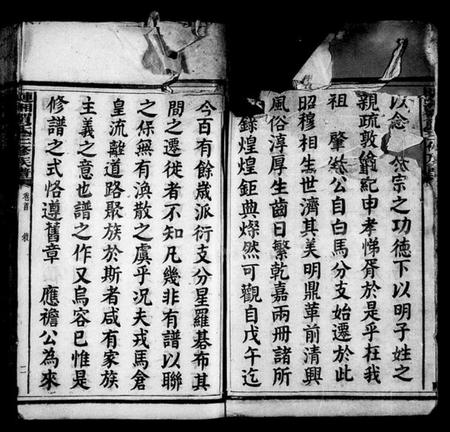 以念 宗之功德下以明子姓之
親疏敦 紀申孝悌胥於是乎在我
祖 肇 公自白馬分支始遷於此
昭穆相生世濟其美明鼎革前清興
風俗淳厚生齒日繁乾嘉兩冊諸所
錄煌煌鉅典燦然可觀自戊午迄
今百有餘歲派衍支分星羅碁布其
間之遷徙者不知凡幾非有譜以聯
之保無有渙散之虞乎況夫戎馬倉
皇流離道路聚族於斯者咸有家族
主義之意也譜之作又烏容已惟是
修譜之式恪遵舊章 應襜公為來
卷首
二